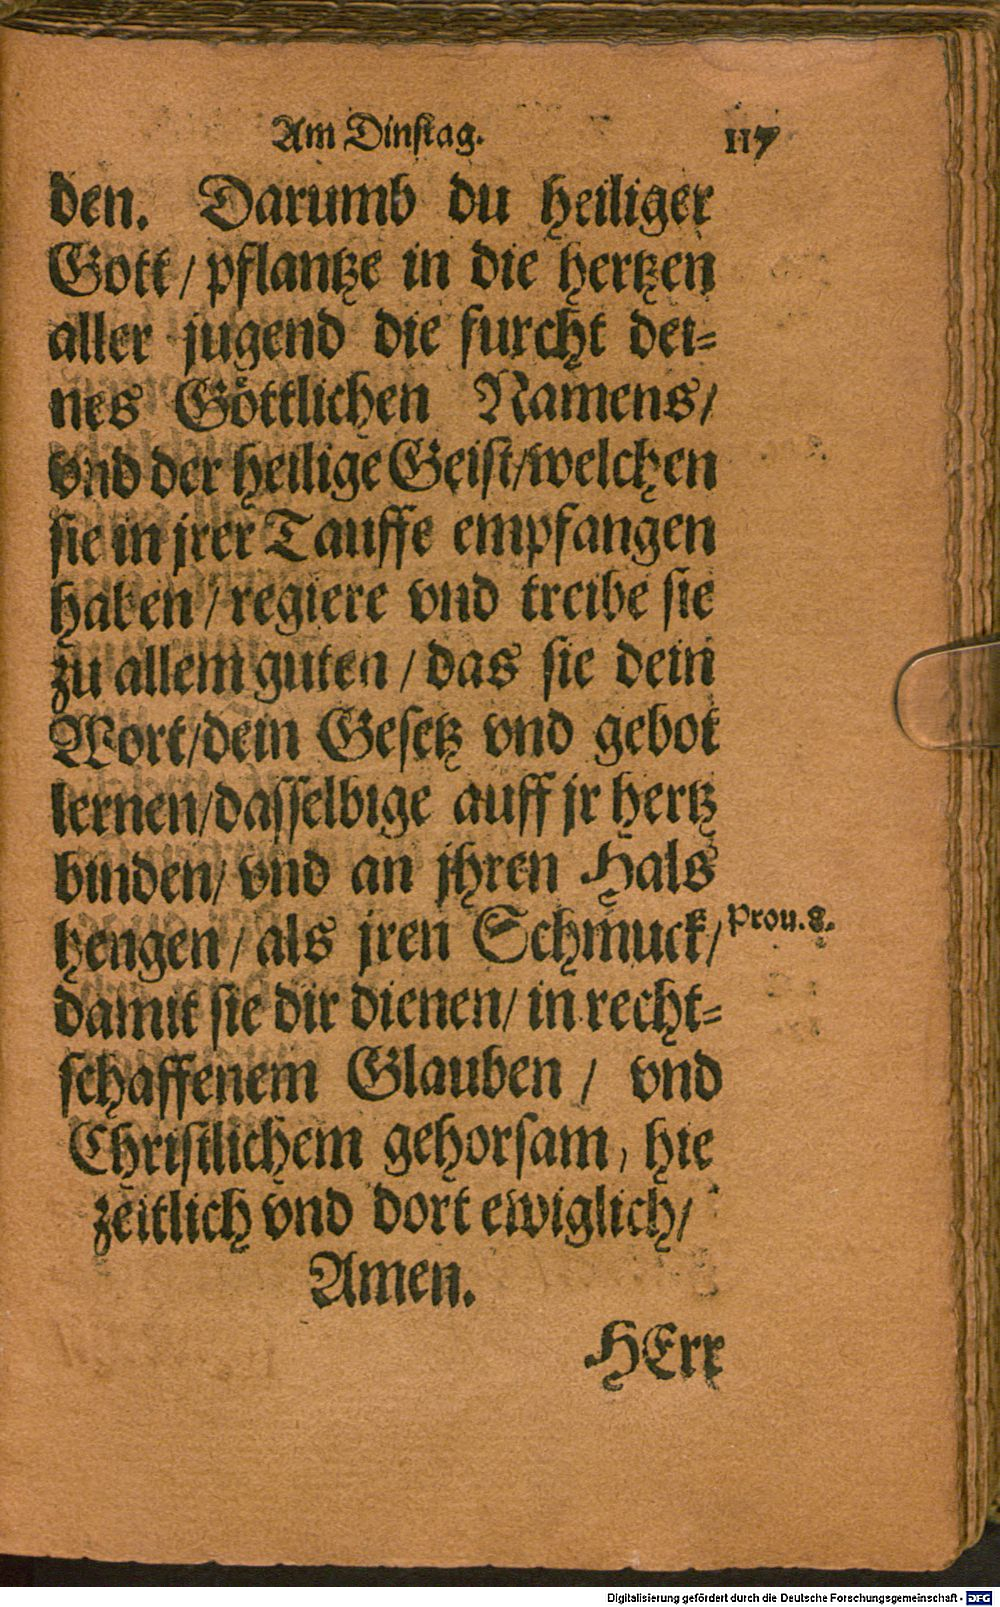 Am Dinstag. 117
den. Darumb du heiliger
Gott / pflantze in die hertzen
aller jugend die furcht dei=
nes Göttlichen Namens /
vnd der heilige Geist / welchen
sie in jrer Tauffe empfangen
haben / regiere vnd treibe sie
zu allem guten / das sie dein
Wort / dein Gesetz vnd gebot
lernen / dasselbige auff jr hertz
binden / vnd an jhren Hals
hengen / als jren Schmuck / Prou. 8.
damit sie dir dienen / in recht=
schaffenem Glauben / vnd
Christlichem gehorsam, hie
zeitlich vnd dort ewiglich /
Amen.
HErr
Digitalisierung gefördert durch die Deutsche Forschungsgemeinschaft - DFG